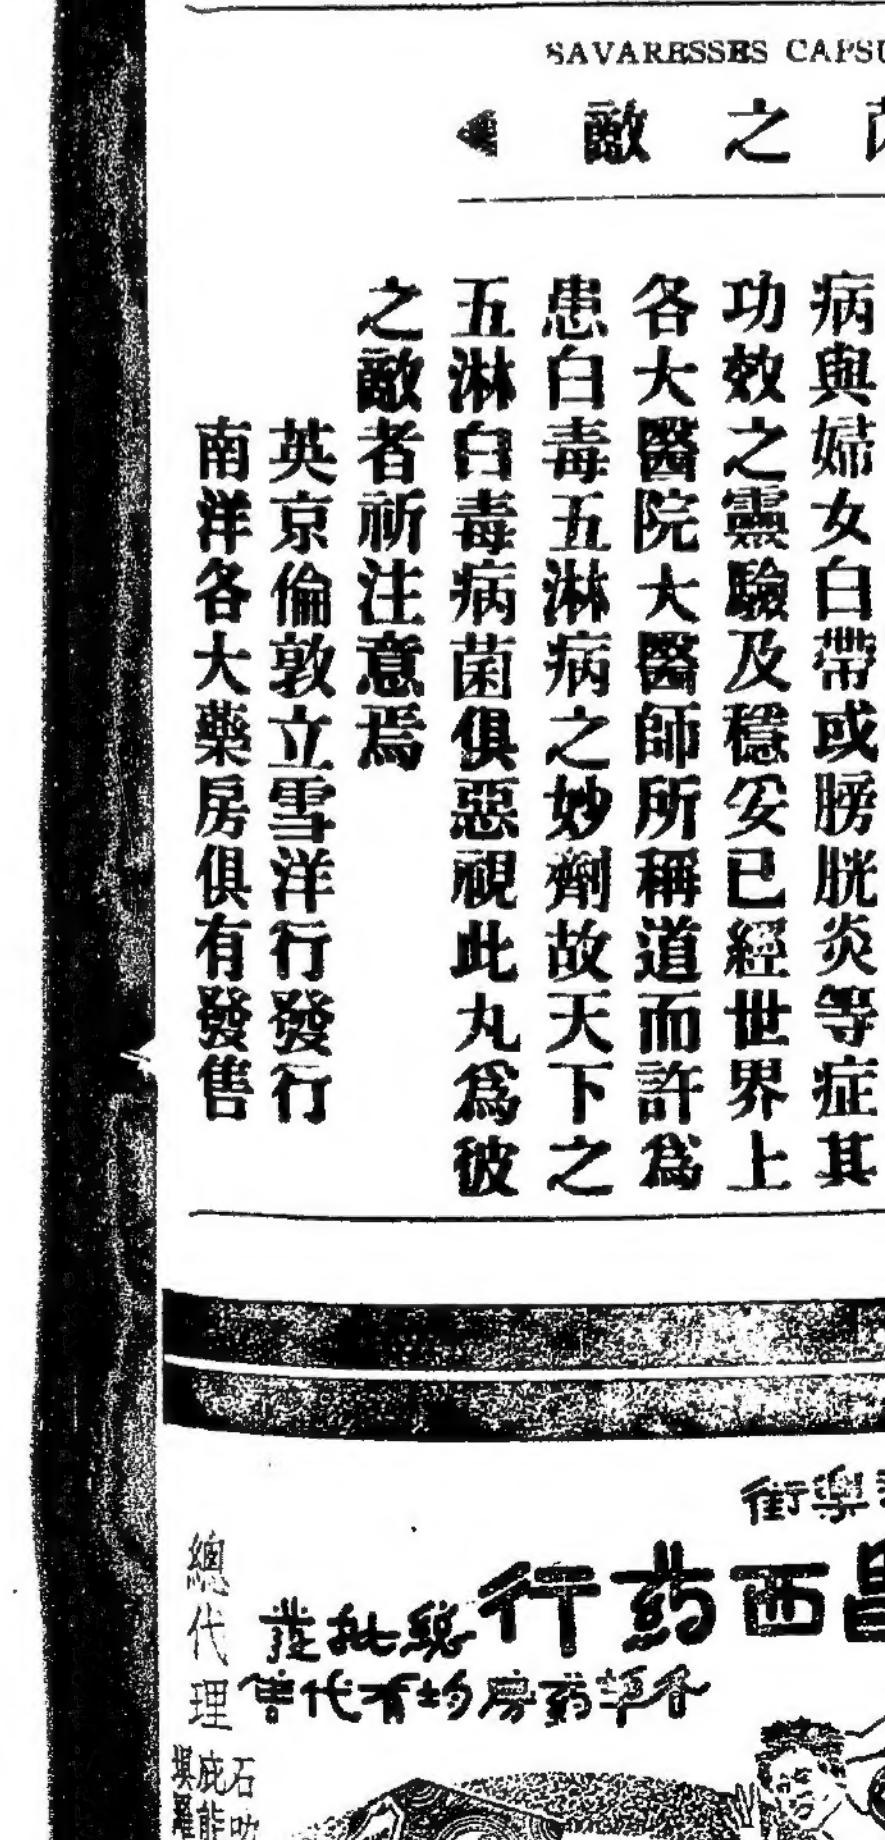 SAVARESSES CAPSU
敵之
病與婦女白帶或膀胱炎等症其
功效之靈驗及穩妥已經世界上
各大醫院大醫師所稱道而許爲
患白毒五淋病之妙劑故天下之
五淋白毒病菌俱惡視此丸爲彼
之敵者祈注意焉
英京倫敦立雪洋行發行
南洋各大藥房俱有發售
街樂
行药西昌
發批總
售代有均房药埠各
總代理
石叻
庇能